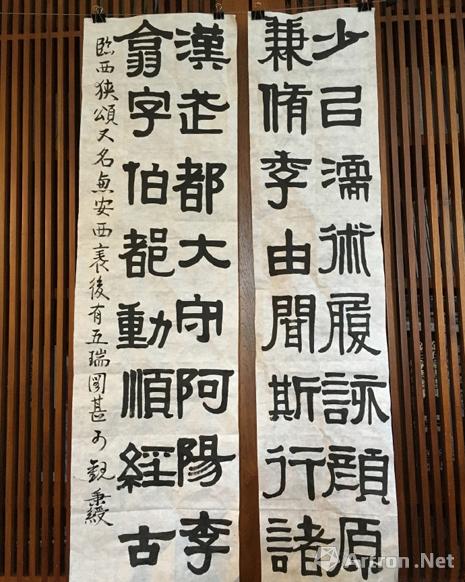 少㠯濡術履詠顏原
兼脩季由聞斯行諸
漢武都大守阿陽李
翕字伯都動順經古
臨西狹頌又名惠安西表後有五瑞圖甚可觀秉綬
Artron.Net